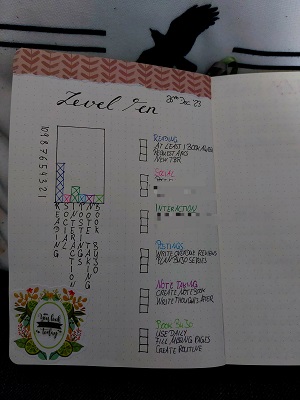 Level Ten
30th Dec '23
10 9 8 7 6 5 4 3 2 1
READING
SOCIAL
INTERACTION
POSTINGS
NOTE TAKING
BOOK BUJO
READING
AT LEAST 1 BOOK A WEEK
REQUEST ARCS
NEW TBR
SOCIAL
INTERACTION
POSTINGS
WRITE CREATIVE REVIEWS
PLAN BUJO SERIES
NOTE TAKING
CREATE NOTEBOOK
WRITE THOUGHTS AFTER
BOOK BUJO
USE DAILY
FILL MISSING PAGES
CREATE ROUTINE
you look
today